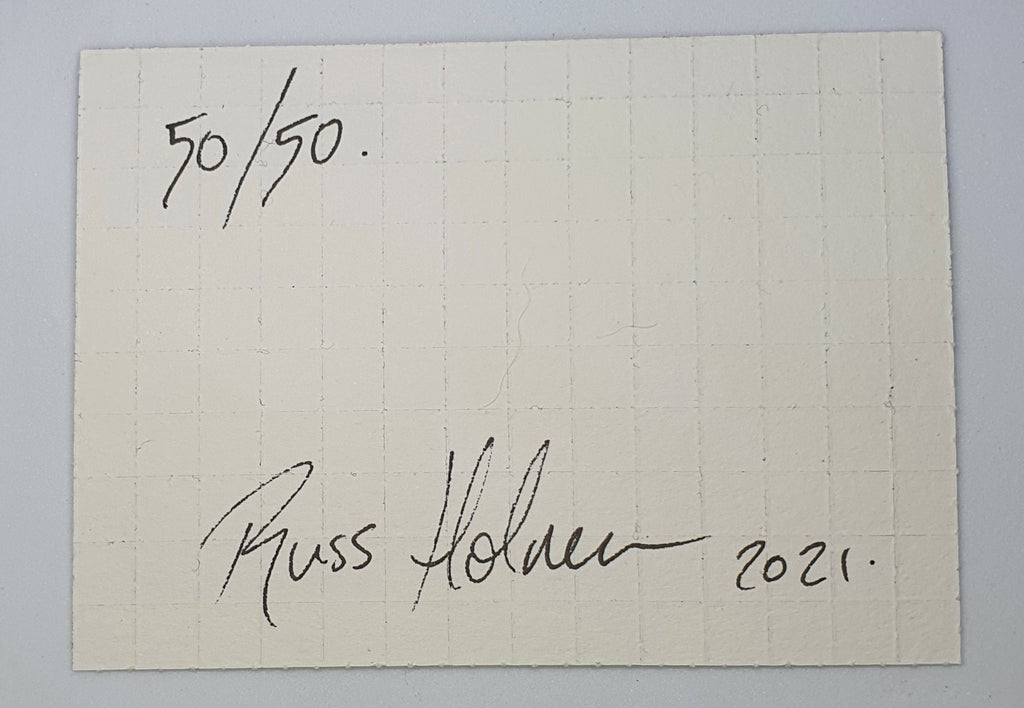 50/50.
Russ Holmen 2021.